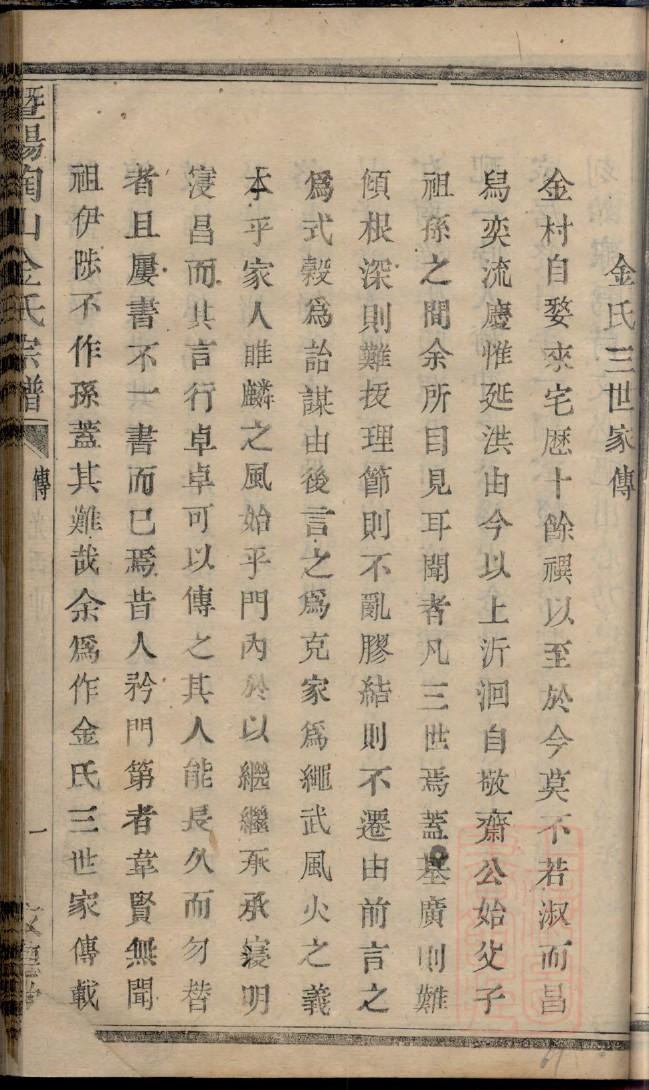 金氏三世家傳
金村自婺來宅歴十餘禩以至於今莫不若淑而昌
舄奕流慶惟延洪由今以上泝洄自敬齋公始父子
祖孫之間余所目見耳聞者凡三世焉蓋基廣則難
傾根深則難拔理節則不亂膠結則不遷由前言之
爲式穀爲詒謀由後言之爲克家爲繩武風火之義
本乎家人雎麟之風始乎門內於以繼繼承承寖明
寖昌而其言行卓卓可以傳之其人能長久而勿替
者且屢書不一書而已焉昔人矜門第者韋賢無聞
祖伊陟不作孫蓋其難哉余爲作金氏三世家傳載
暨陽陶山金氏宗譜
傳
一